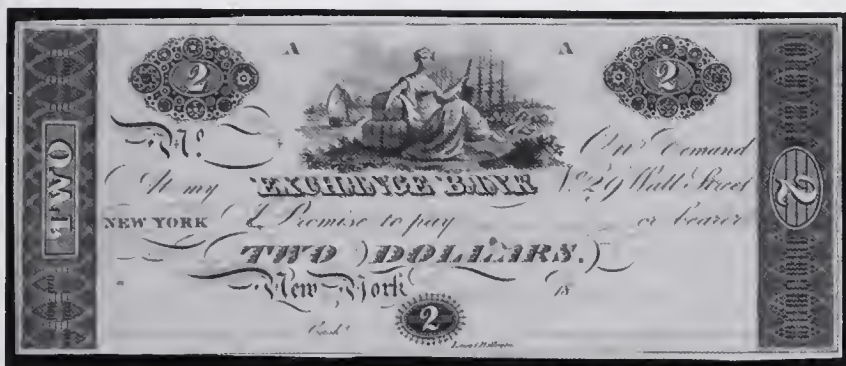 A A
2 2
TWO
No.
On Demand
At my EXCHANGE BANK No. 29 Wall Street
2
NEW YORK I Promise to pay or bearer
TWO DOLLARS.
New-York 18
2
Cash.r